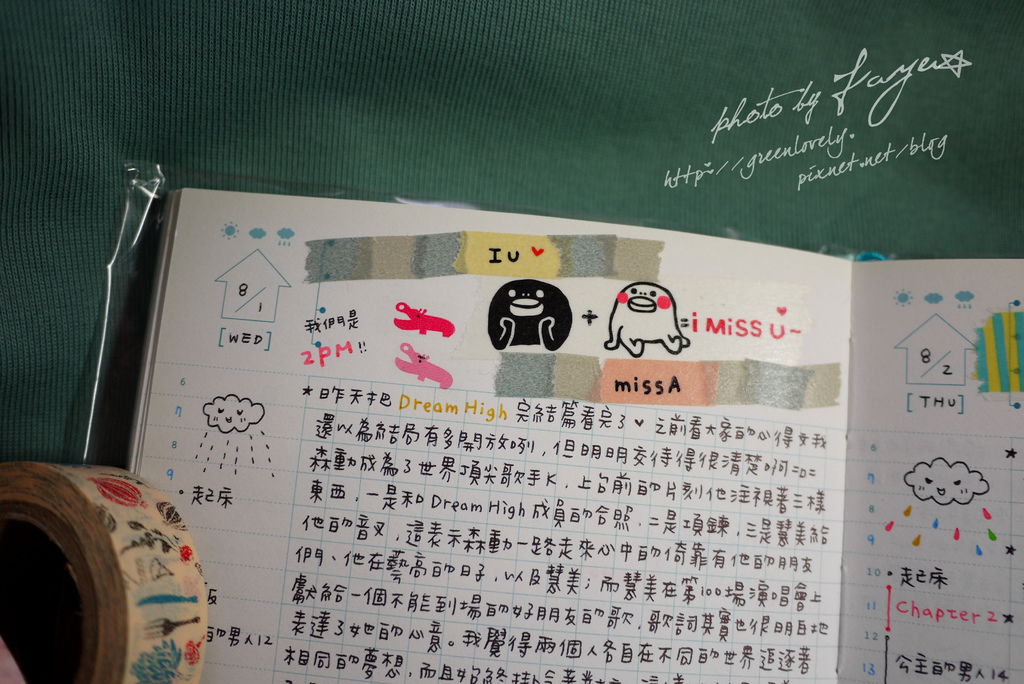 photo by Faye
http://greenlovely.
pixnet.net/blog
IU
8/1
[WED]
我們是
2PM!!
+
=i MiSS U~
missA
★昨天把Dream High完結篇看完了♥之前看大家的心得文我
還以為結局有多開放咧,但明明交待得很清楚啊=口=
森動成為了世界頂尖歌手K,上台前的片刻他注視著三樣
東西,一是和Dream High成員的合照,二是項鍊,三是慧美給
他的音叉,這表示森動一路走來心中的倚靠有他的朋友
們、他在藝高的日子,以及慧美;而慧美在第100場演唱會上
獻給一個不能到場的好朋友的歌,歌詞其實也很明白地
表達了她的心意。我覺得兩個人各自在不同的世界追逐著
相同的夢想,而且
6
7
8
9
•起床
的男人12
8/2
[THU]
6
7
8
9
10
•起床
11
Chapter 2
12
13
公主的男人14